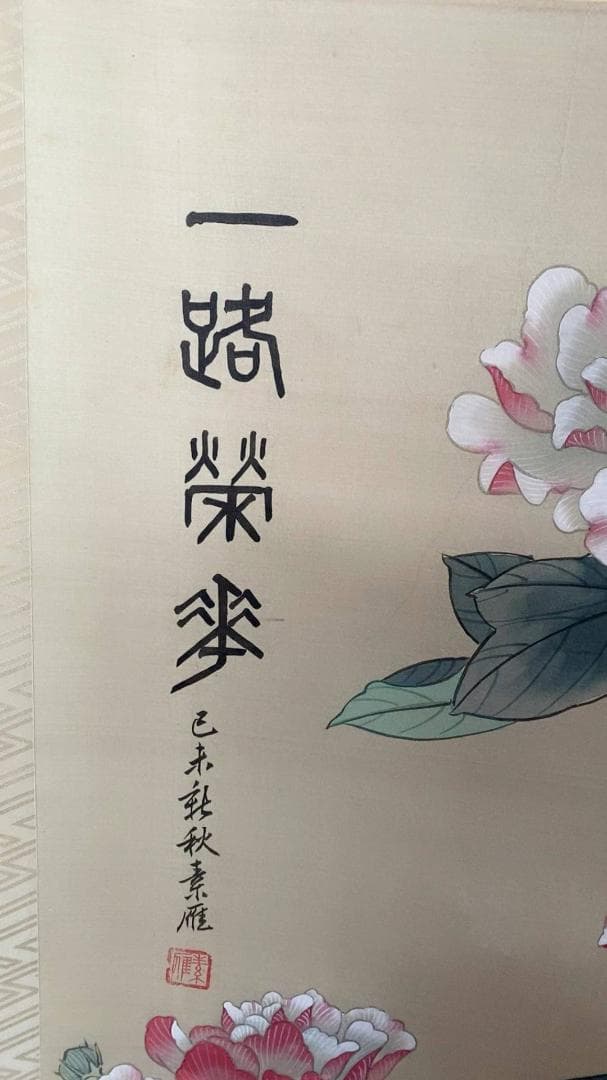 一路榮華
己未新秋素雁
素雁